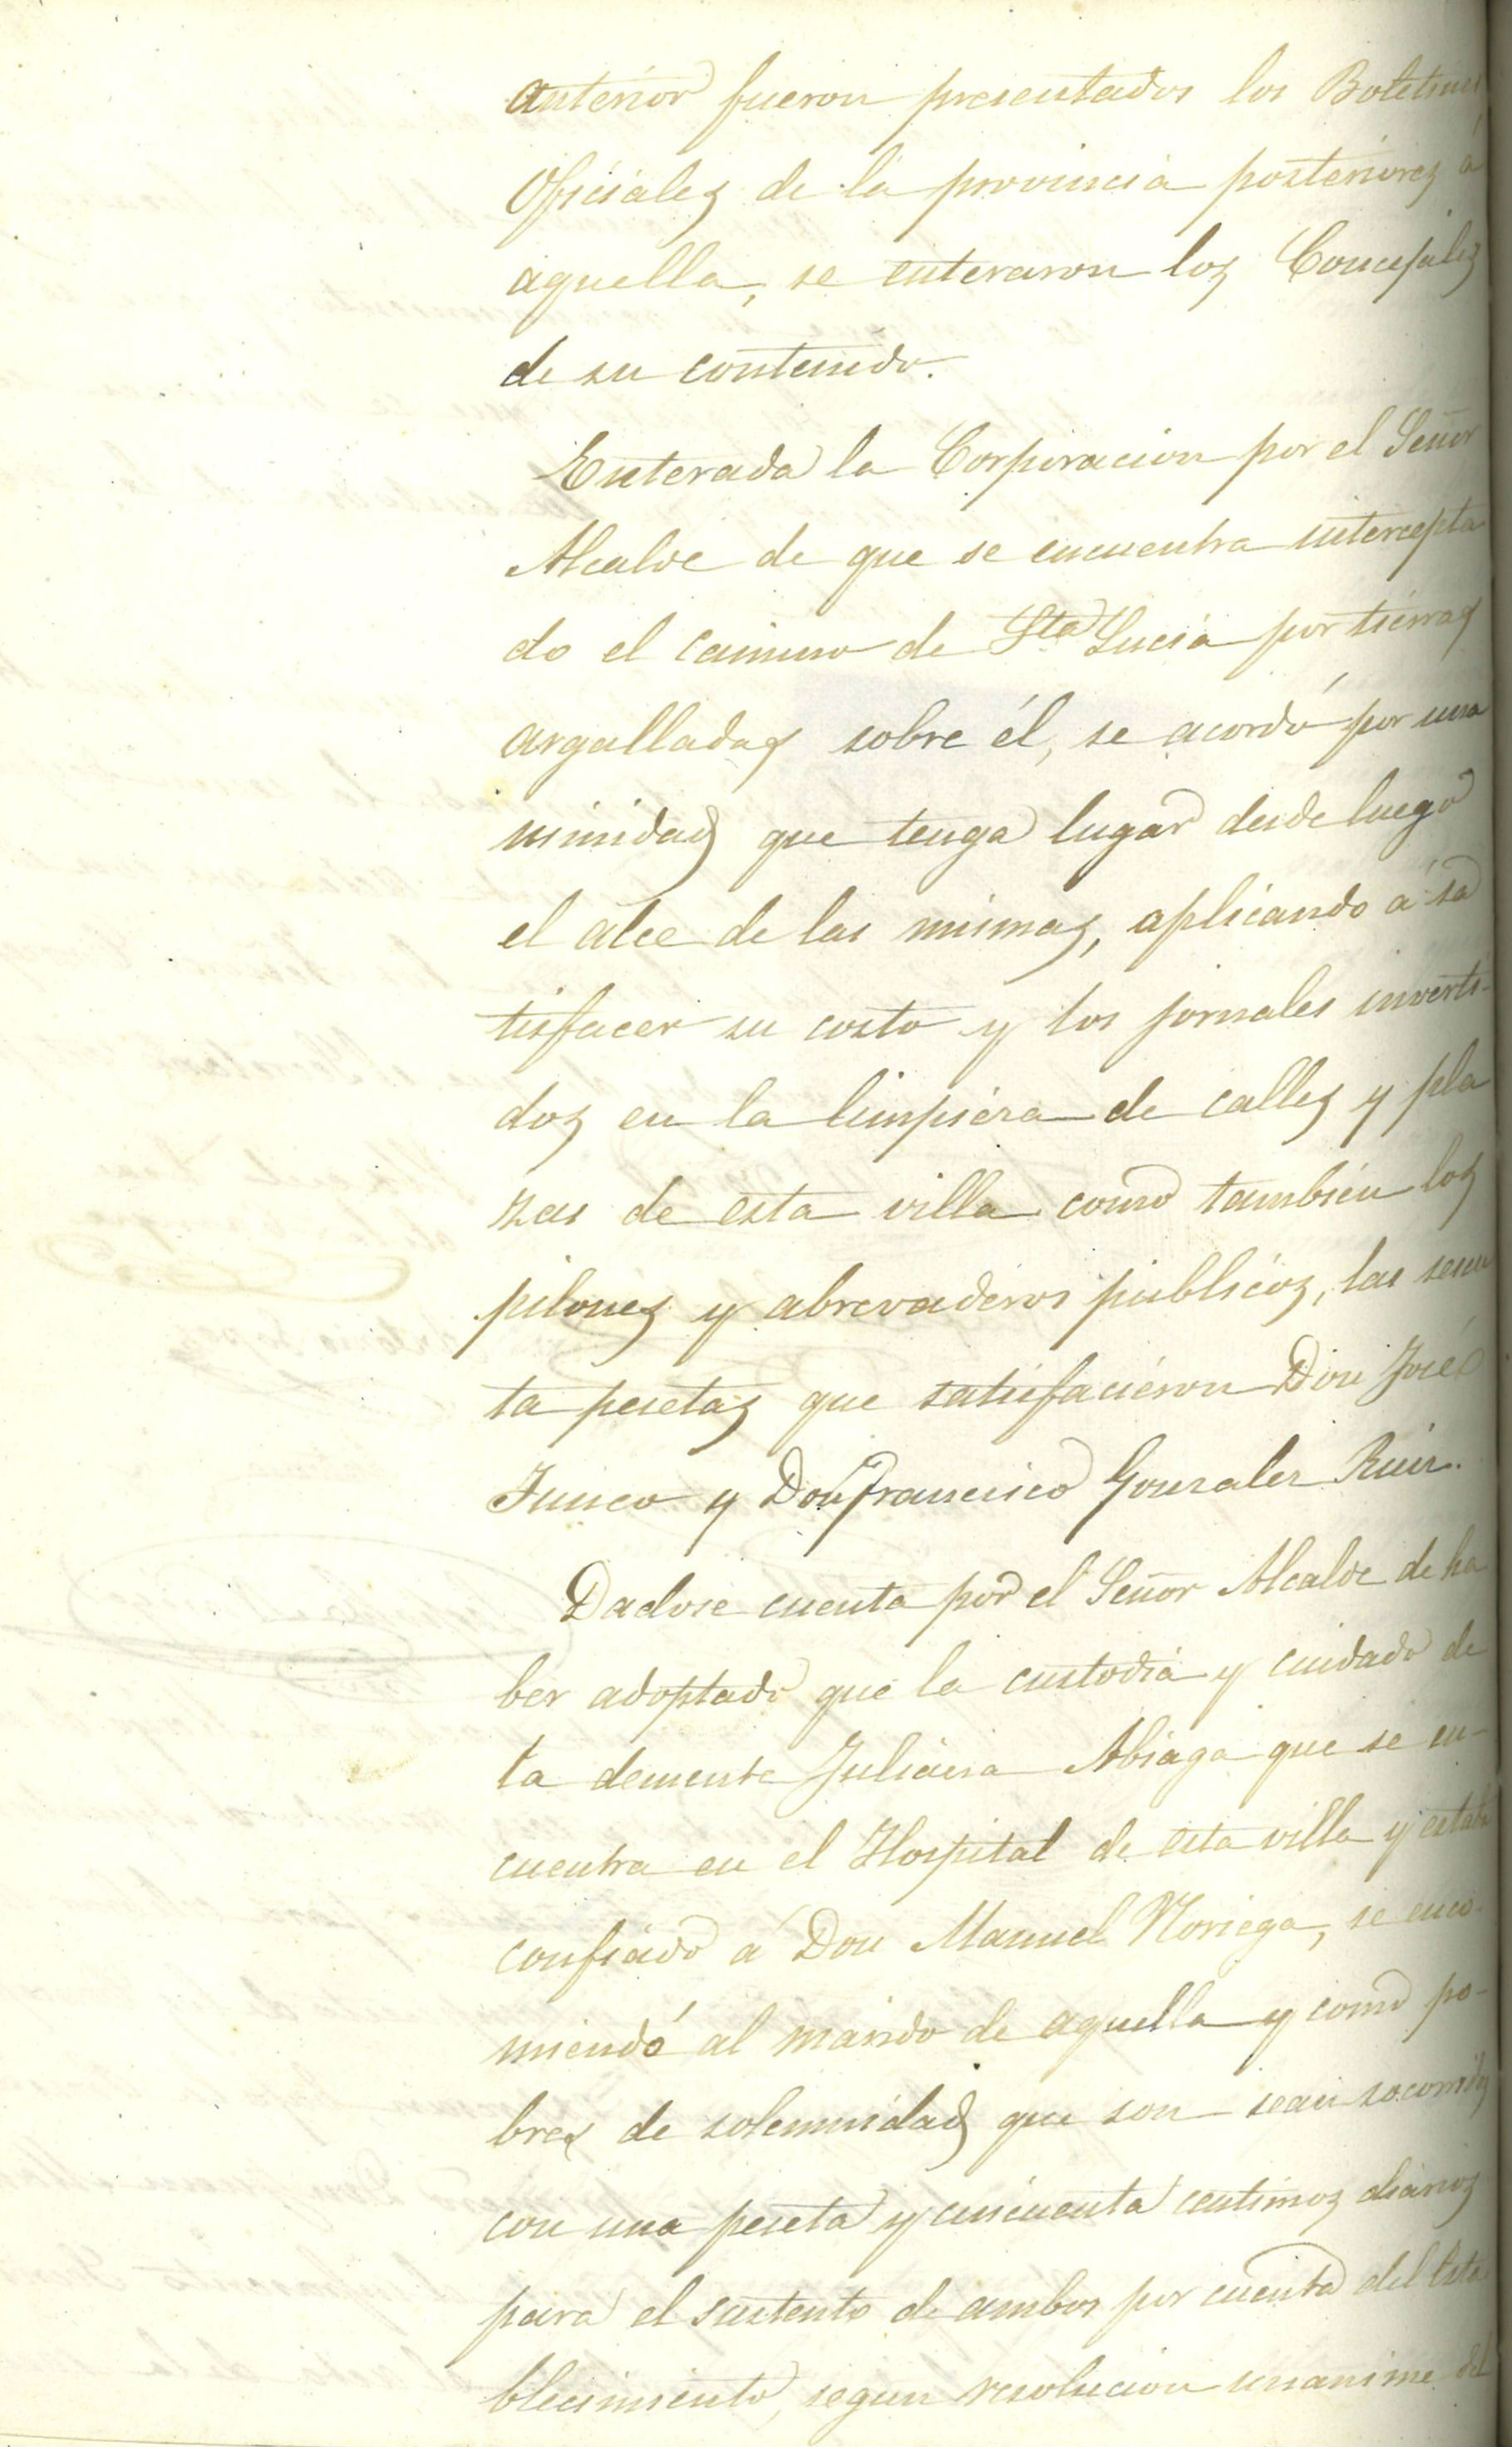 anterior fueron presentados los Boletines
Oficiales de la provincia posteriores á
aquella, se enteraron los Concejales
de su contenido.
Enterada la Corporacion por el Señor
Alcalde de que se encuentra intercepta
do el camino de Sta Lucia por tierras
argalladas sobre él, se acordó por una
nimidad que tenga lugar desde luego
el alce de las mismas, aplicando á sa
tisfacer su costo y los jornales inverti-
dos en la limpieza de calles y pla
zas de esta villa como tambien los
pilones y abrevaderos publicos, las sesen
ta pesetas que satisfacieron Don José
Junco y Don Francisco Gonzalez Ruiz.
Dadose cuenta por el Señor Alcalde de ha
ber adoptado que la custodia y cuidado de
la demente Juliana Abiaga que se en-
cuentra en el Hospital de esta villa y estaba
confiado á Don Manuel Noriega, se enco-
miendó al marido de aquella y como po-
bres de solemnidad que son sean socorridos
con una peseta y cincuenta centimos diarios
para el sustento de ambos por cuenta del Esta-
blecimiento, segun resolucion unanime del